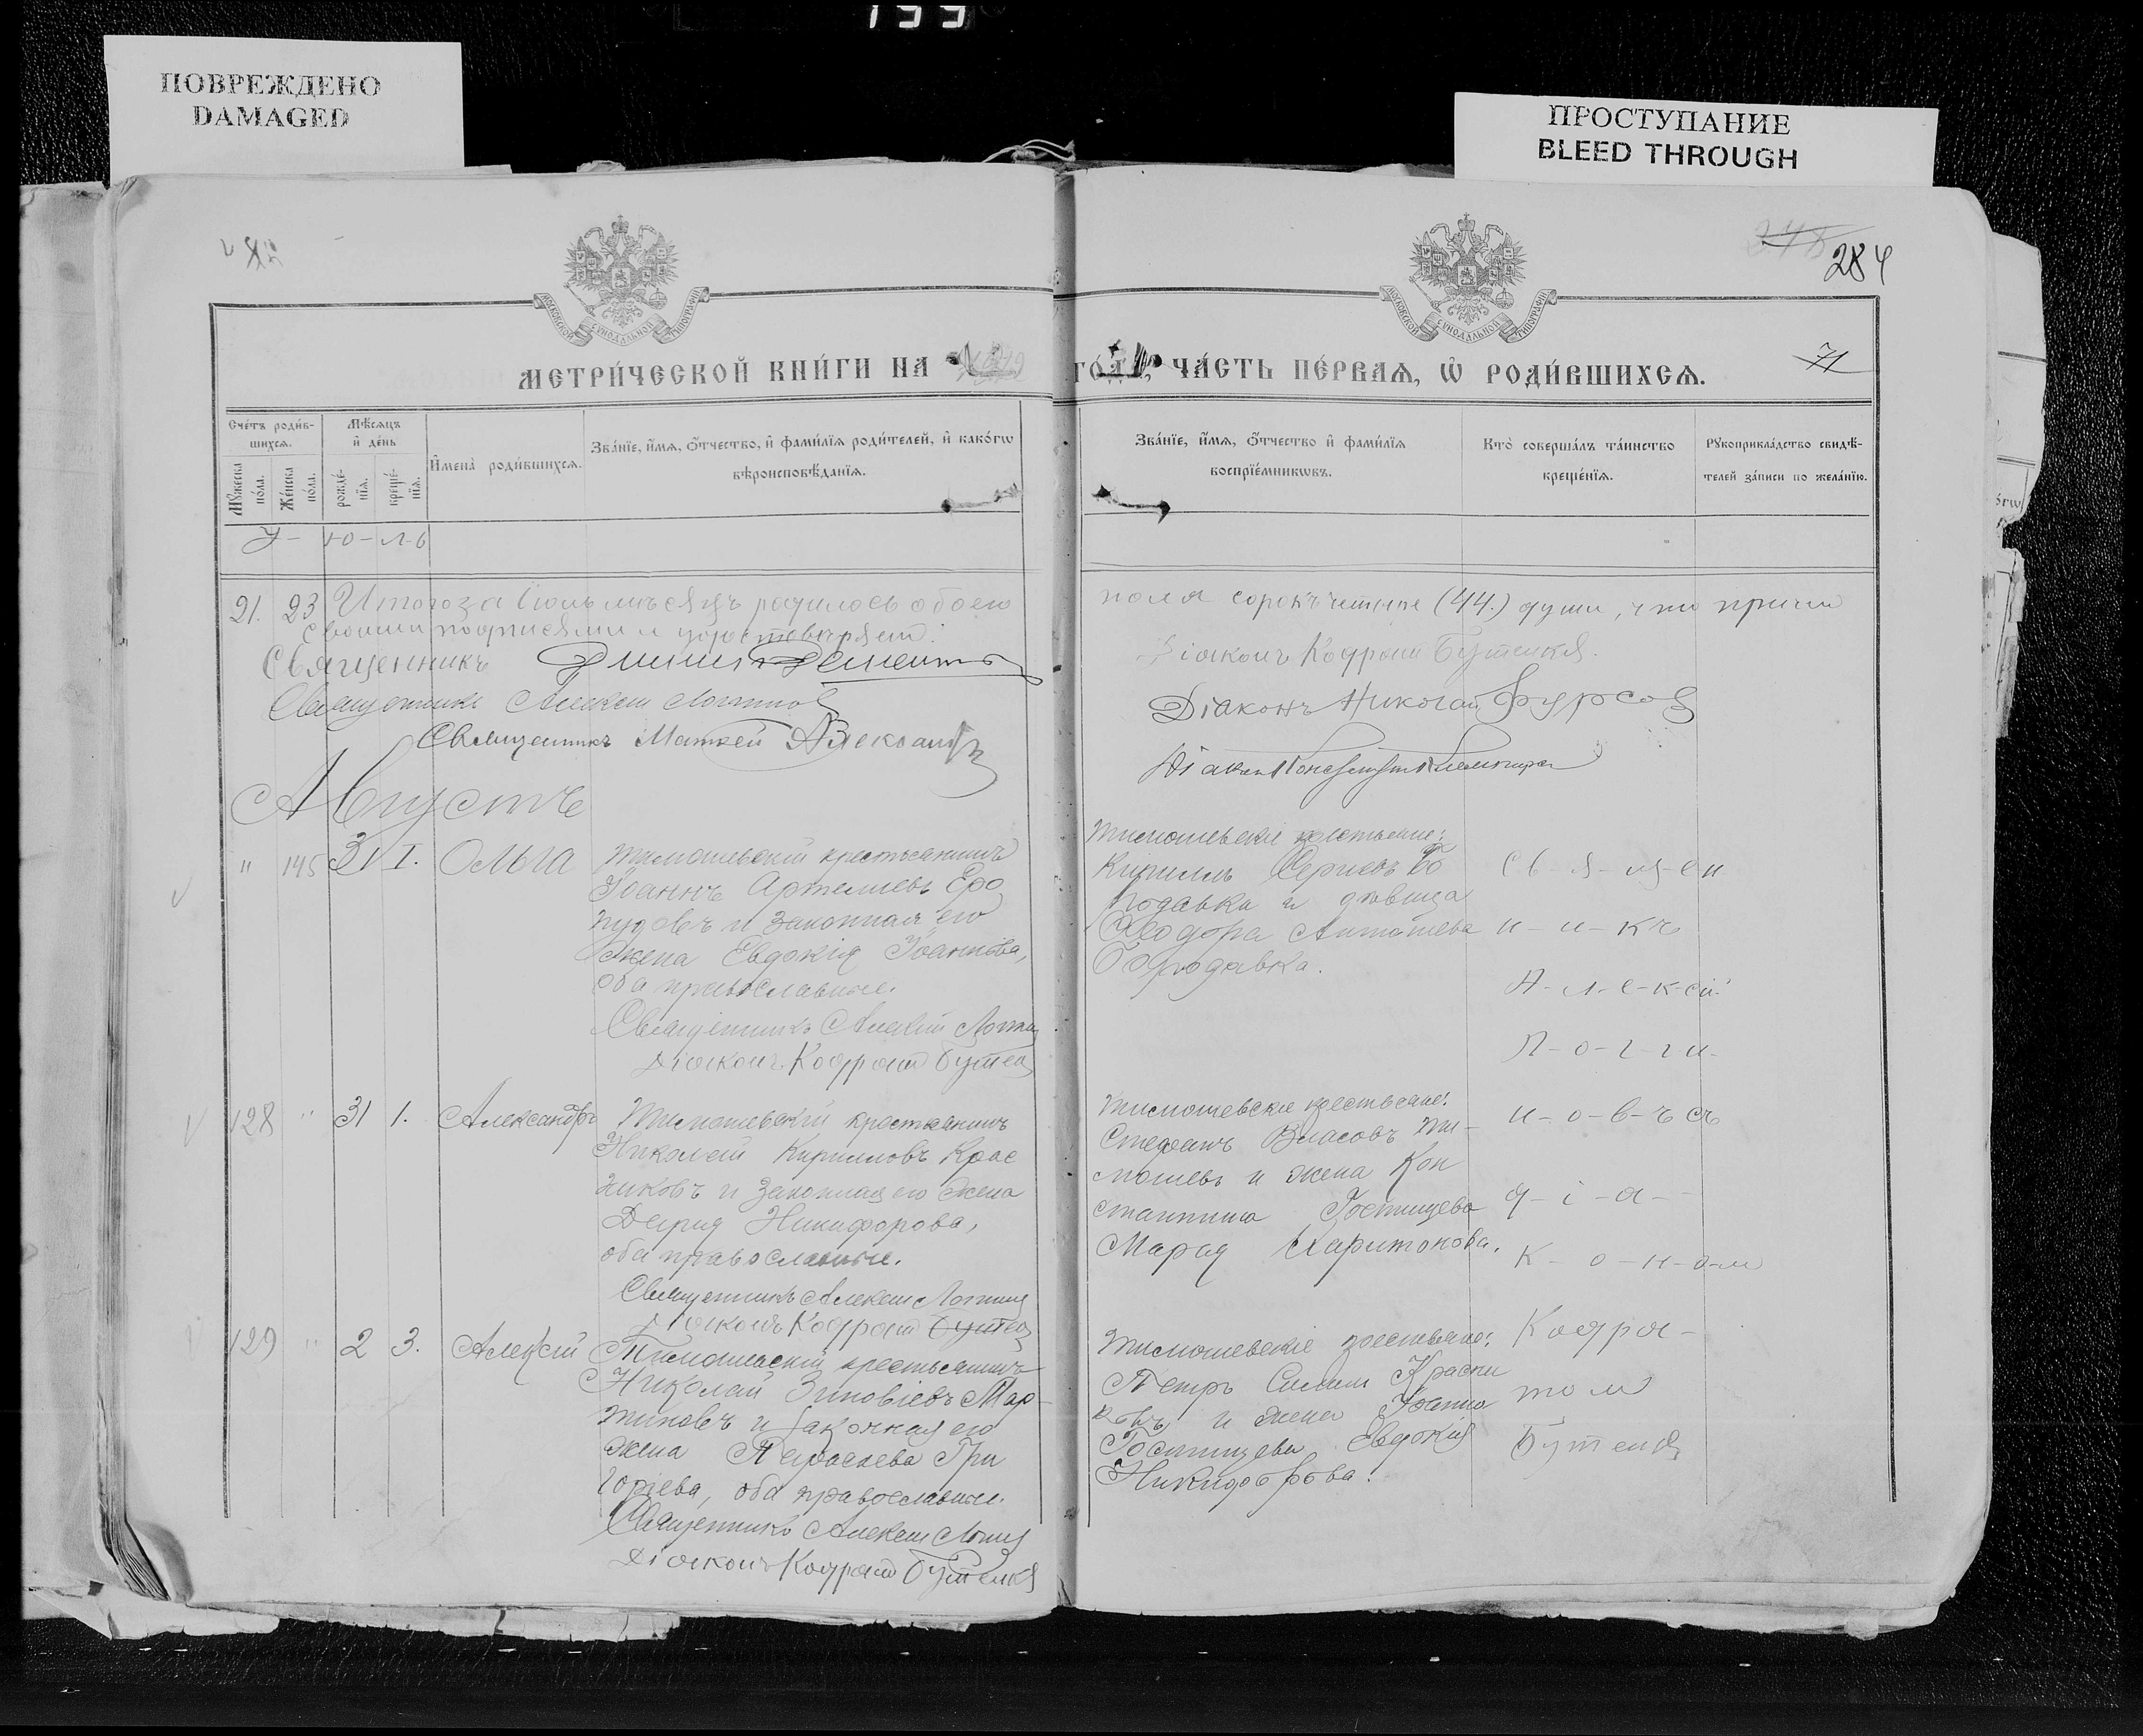 199
ПОВРЕЖДЕНО
DAMAGED
ПРОСТУПАНИЕ
BLEED THROUGH
284
МОСКОВСКОЙ СѴНОДАЛЬНОЙ ТИПОГРАФІИ
МОСКОВСКОЙ СѴНОДАЛЬНОЙ ТИПОГРАФІИ
МЕТРИ́ЧЕСКОЙ КНИ́ГИ НА
ГО́ДЪ, ЧА́СТЬ ПЕ́РВАѦ, Ѡ҆ РОДИ́ВШИХСѦ.
71
Сче́тъ роди́в-
шихсѧ.
Мꙋ́жеска
по́ла.
Же́нска
по́ла.
Мѣ́сѧцъ
и҆ де́нь
рожде́-
нїѧ.
креще́-
нїѧ.
И҆мена̀ роди́вшихсѧ.
Зва́нїе, и҆́мѧ, ѻ҆́тчество, и҆ фами́лїѧ роди́телей, и҆ како́гѡ
вѣроисповѣ́данїѧ.
Зва́нїе, и҆́мѧ, ѻ҆́тчество и҆ фами́лїѧ
воспрїе́мникѡвъ.
Кто̀ соверша́лъ та́инство
креще́нїѧ.
Рꙋкоприкла́дство свидѣ́-
телей за́писи по жела́нїю.
І-ю-л-ь
21. 23 Итого за Іюль мѣсяцъ родилось обоего
пола сорокъ четыре (44.) души, что причтъ
своими подписями и удостоверяет:
Священникъ
Діаконъ Кодратъ Бутенко
Священникъ Алексій Логгиновъ
Діаконъ Николай Фурсов
Священникъ Матвей Александр
Діаконъ Константин
Августъ
" 145 31 1. Ольга
Тимошевскій крестьянинъ
Іоаннъ Артемьевъ Еро
пудовъ и законная его
жена Евдокія Іоаннова,
оба православные.
Священникъ Алексій Логгин
Діаконъ Кодратъ Бутен
Тимошевскіе крестьяне:
Кириллъ Сергіевъ Бо
родавка и дѣвица
Ѳеодора Антонова
Бородавка.
С-в-я-щ-ен
н-и-къ
А-л-е-к-сій
Л-о-г-ги-
128 " 31 1. Александръ
Тимошевскій крестьянинъ
Николай Кирилловъ Крас
никовъ и законная его жена
Дарія Никифорова,
оба православные.
Священникъ Алексій Логгин
Діаконъ Кодратъ Бутен
Тимошевскіе крестьяне:
Стефанъ Власовъ Ти-
мошевъ и жена Кон
стантина Гостищева
Марія Харитонова.
н-о-в-ъ съ
д-і-а-
к-о-н-о-м
129 " 2 3. Алексій
Тимошевскій крестьянинъ
Николай Зиновіевъ Мар-
тиновъ и законная его
жена Параскева Гри
горіева, оба православные.
Священникъ Алексій Логгин
Діаконъ Кодратъ Бутенко
Тимошевскіе крестьяне:
Петръ Силинъ Красни
ковъ и жена Іоанна
Гостищева Евдокія
Никифорова.
Кодра-
том
Бутенко